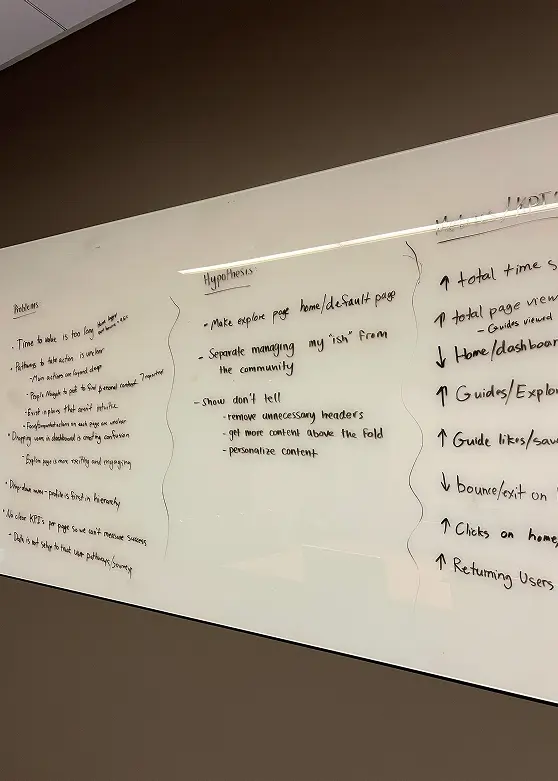 Problems
- Time to value is too long
- Pathways to take action is unclear
- Main actions are beyond drops
- People Navigate to post to find personal content
- Exist in places that aren't intuitive
- Focus/important actions on each page are unclear
- Dropping users in dashboard is creating confusion
- Explore page is more exciting and engaging
- Dropdown menu - profile is first in hierarchy
- No clear KPI's per page so we can't measure success
- Data is not setup to track user pathways/journey
Hypothesis
- Make explore page home/default page
- Separate managing my "ish" from
the community
- Show don't tell
- remove unnecessary headers
- get more content above the fold
- personalize content
↑ total time s
↑ total page view
- Guides viewed
↓ Home/dashboar
↑ Guides/Explor
↑ Guide likes/sav
↓ bounce/exit on
↑ Clicks on home,
↑ Returning Users